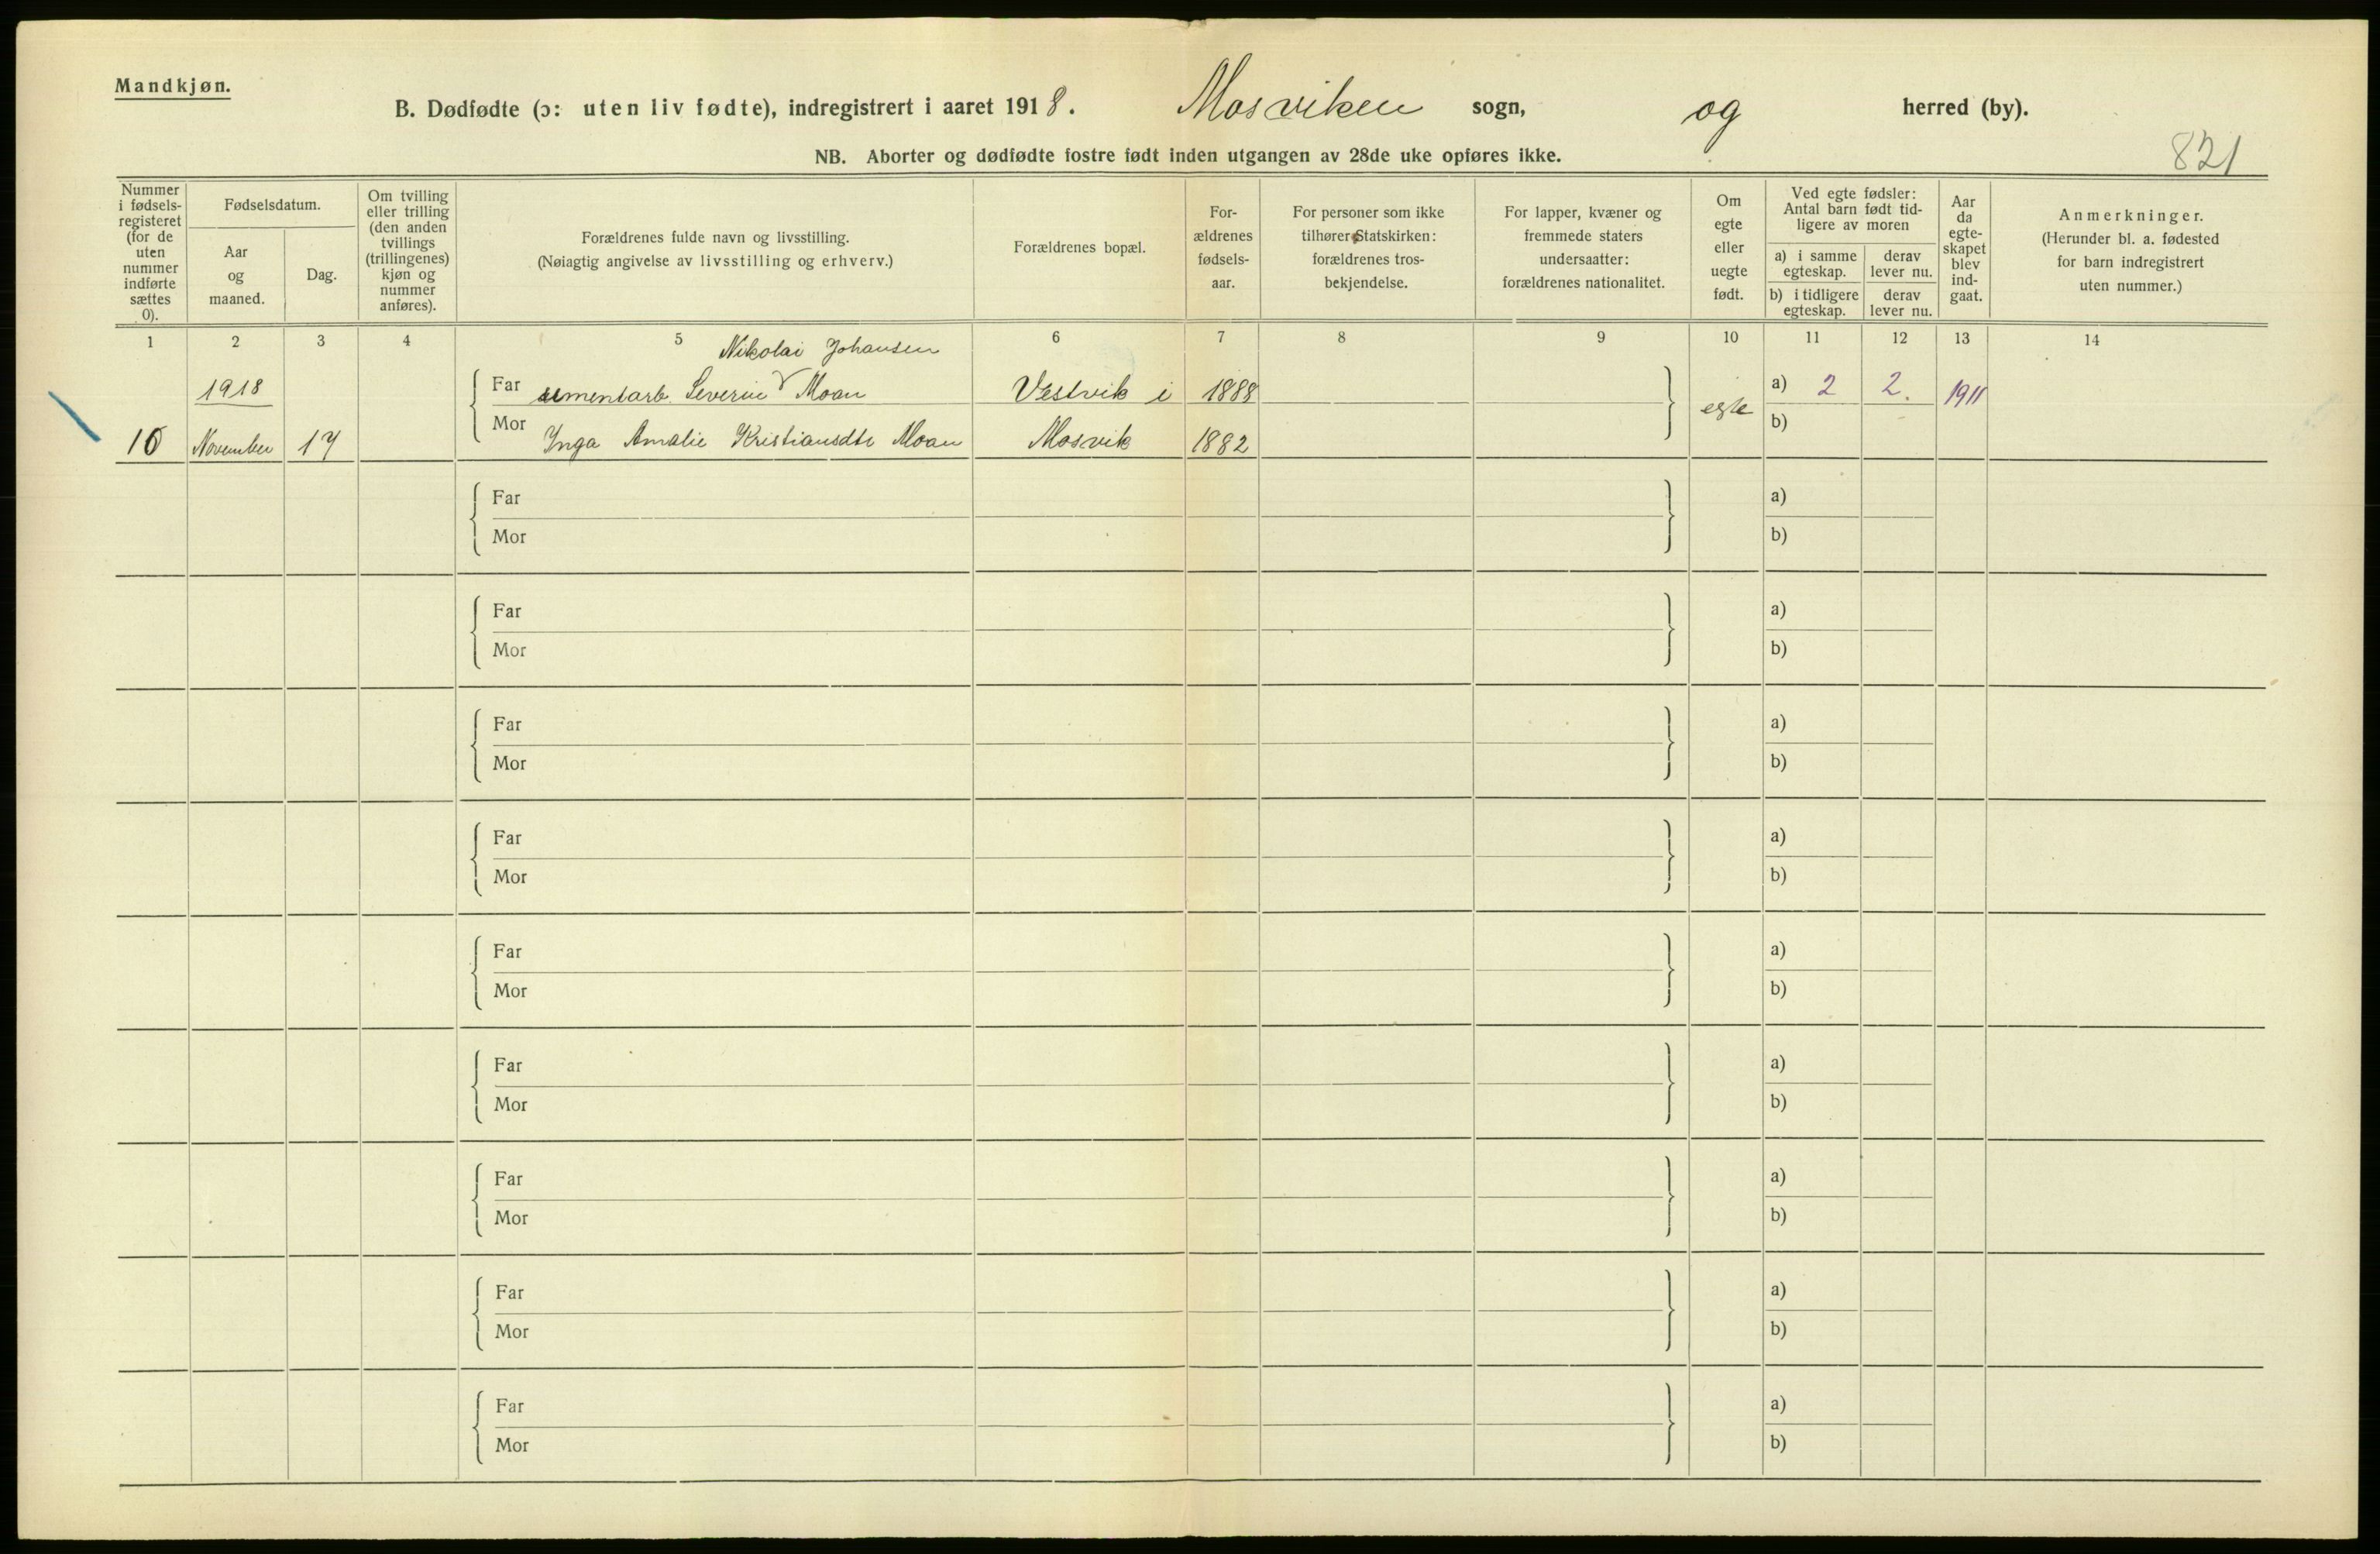 Mandkjøn.
B. Dødfødte (ɔ: uten liv fødte), indregistrert i aaret 1918. Mosviken sogn, og herred (by).
NB. Aborter og dødfødte fostre født inden utgangen av 28de uke opføres ikke.
821
Nummer
i fødsels-
registeret
(for de
uten
nummer
indførte
sættes
0).
Fødselsdatum.
Aar
og
maaned.
Dag.
Om tvilling
eller trilling
(den anden
tvillings
(trillingenes)
kjøn og
nummer
anføres).
Forældrenes fulde navn og livsstilling.
(Nøiagtig angivelse av livsstilling og erhverv.)
Forældrenes bopæl.
For-
ældrenes
fødsels-
aar.
For personer som ikke
tilhører Statskirken:
forældrenes tros-
bekjendelse.
For lapper, kvæner og
fremmede staters
undersaatter:
forældrenes nationalitet.
Om
egte
eller
uegte
født.
Ved egte fødsler:
Antal barn født tid-
ligere av moren
a) i samme
egteskap.
derav
lever nu.
b) i tidligere
egteskap.
derav
lever nu.
Aar
da
egte-
skapet
blev
ind-
gaat.
Anmerkninger.
(Herunder bl. a. fødested
for barn indregistrert
uten nummer.)
1 2 3 4 5 6 7 8 9 10 11 12 13 14
Nikolai Johansen
1918 Far Severin Moan Vestvik i 1888 egte a) 2 2. 1911
10 November 17 Mor Inga Amalie Kristiansdtr Moan Mosvik 1882 b)
Far a)
Mor b)
Far a)
Mor b)
Far a)
Mor b)
Far a)
Mor b)
Far a)
Mor b)
Far a)
Mor b)
Far a)
Mor b)
Far a)
Mor b)
Far a)
Mor b)